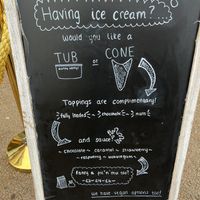 Having ice cream?...
Would you like a
TUB or CONE
Toppings are complimentary!
fully loaded ~ chocolate ~ nuts
and sauce?
~ chocolate ~ caramel ~ strawberry ~
~ raspberry ~ bubblegum ~
Fancy a pic'n'mix too?
we have vegan options too!